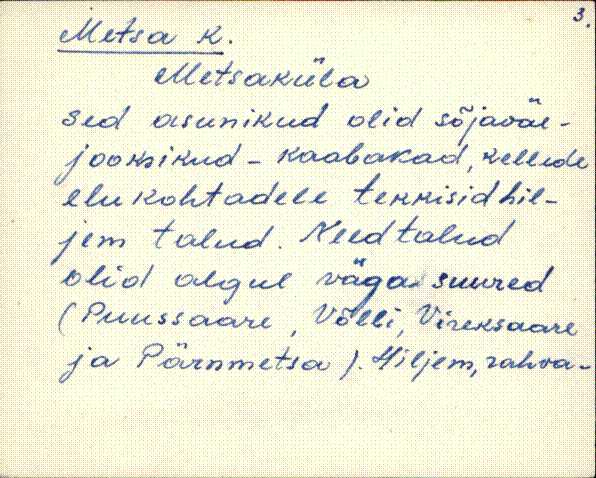 3.
Metsa k.
Metsaküla
sed asunikud olid sõjavae-
jooksikud - kaabakad, kellede
elukohtadele tekkisid hil-
jem talud. Need talud
olid algul väga suured
(Puussaare, Võlli, Vireksaare
ja Pärnmetsa). Hiljem, rahva-